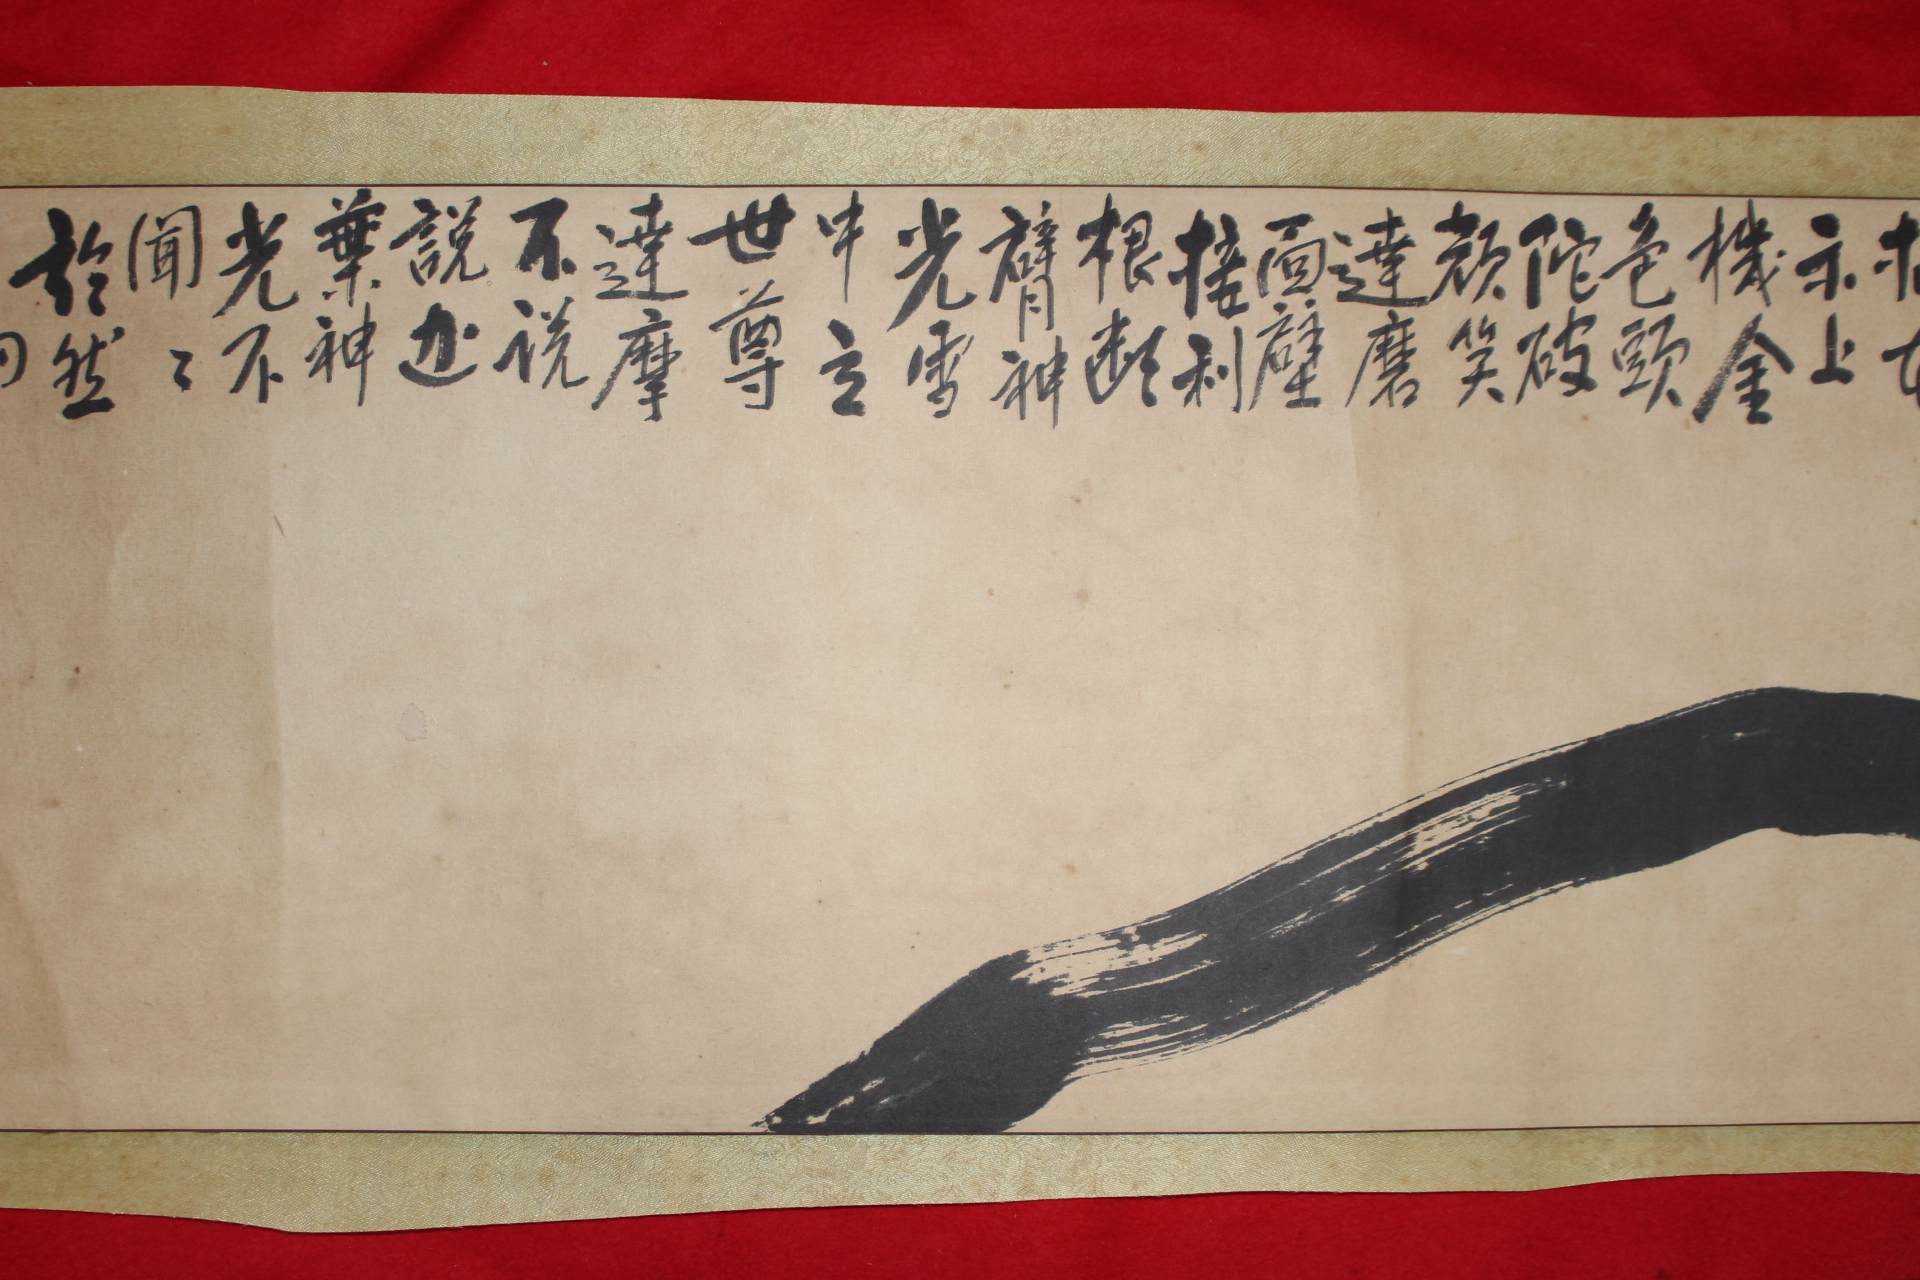 示上
機金
色頭
陀破
顏笑
達磨
面壁
接利
根斷
臂神
光雪
中立
世尊
達摩
不说
說迦
葉神
光不
聞〻
於然